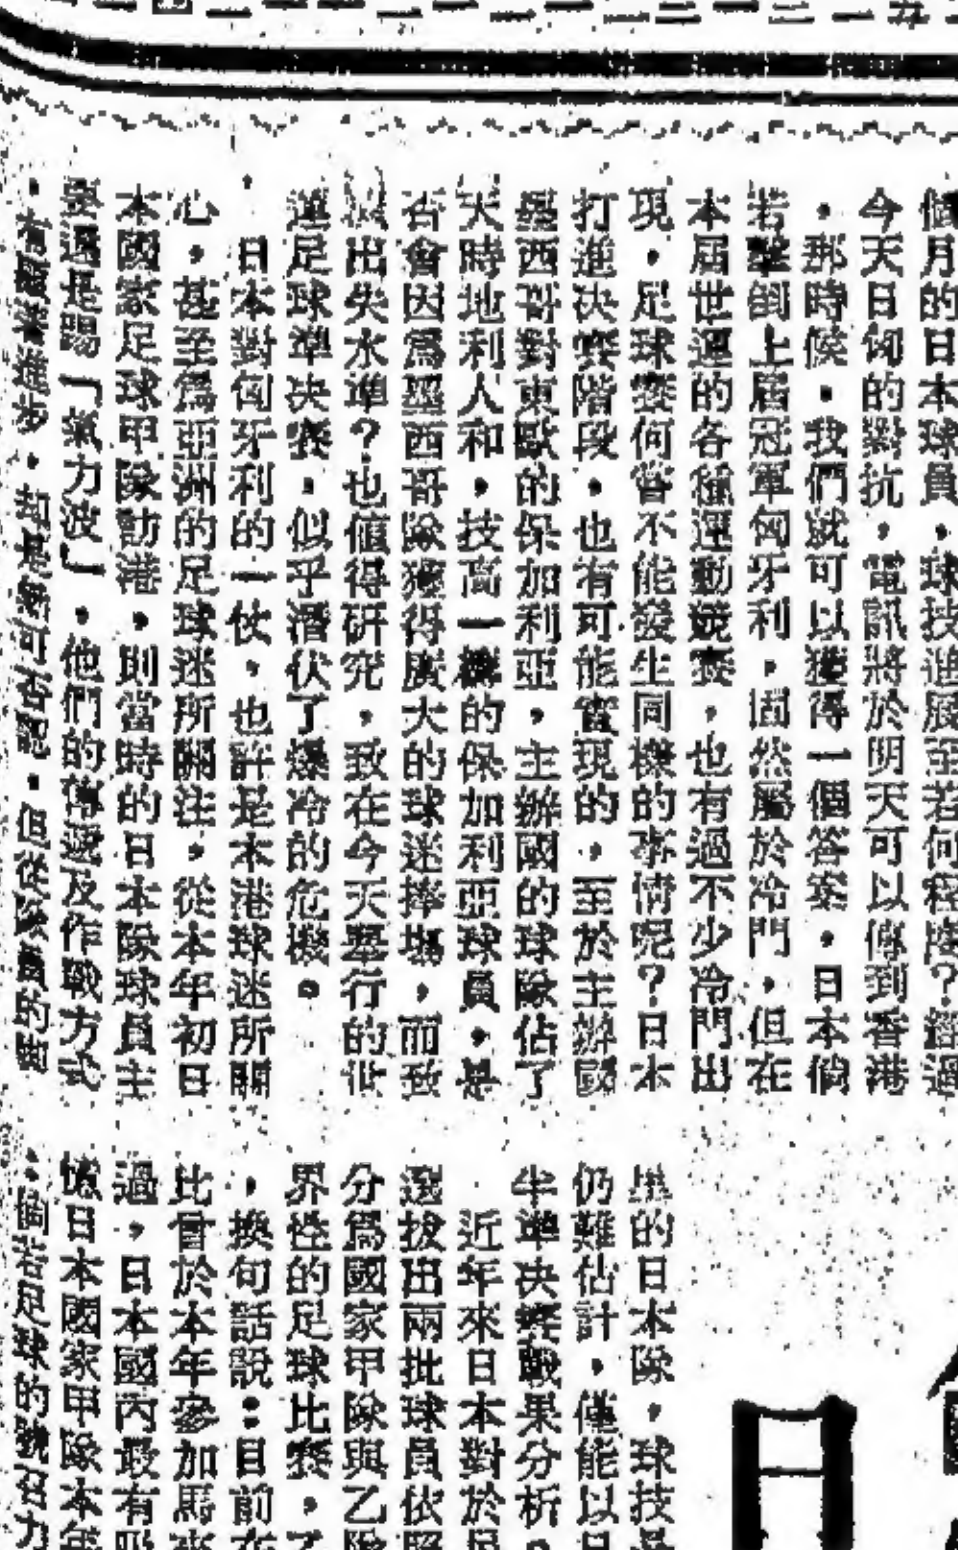 個月的日本球員，球技進展至若何程度？經過
今天日匈的對抗，電訊將於明天可以傳到香港
，那時候，我們就可以獲得一個答案，日本倘
若擊倒上屆冠軍匈牙利，固然屬於冷門，但在
本屆世運的各種運動競賽，也有過不少冷門出
現，足球賽何嘗不能發生同樣的事情呢？日本
打進决賽階段，也有可能實現的，至於主辦國
墨西哥對東歐的保加利亞，主辦國的球隊佔了
天時地利人和，技高一籌的保加利亞球員，是
否會因爲墨西哥隊獲得廣大的球迷捧塲，而致
出失水準？也值得研究，致在今天舉行的世
運足球準决賽，似乎潛伏了爆冷的危機。
日本對匈牙利的一仗，也許是本港球迷所關
心，甚至爲亞洲的足球迷所關注，從本年初日
本國家足球甲隊訪港，則當時的日本隊球員主
要還是踢「氣力波」，他們的傳遞及作戰方式
，有顯著進步，却是無可否認，但從隊員的
的日本隊，球技
仍難估計，僅能以
半準决賽戰果分析。
近年來日本對於足
選拔出兩批球員依照
分爲國家甲隊與乙隊
界性的足球比賽，乙
，換句話說：目前在
比曾於本年參加馬來
過，日本國內最有
憶日本國家甲隊本年
個若足球的
日